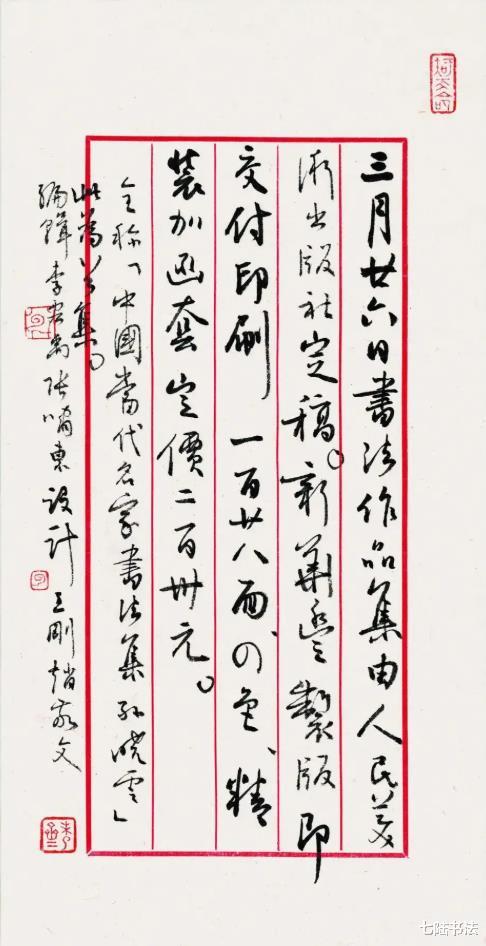 三月廿六日書法作品集由人民美
術出版社定稿。新華邊製版即
交付印刷 一百廿八面、四色、精
裝加函套定價二百卅元。
全称「中國當代名家書法集 孙曉雲」
此為首集。
編輯李宏禹 張嘯東 設計 王剛 趙家文
七陆书法